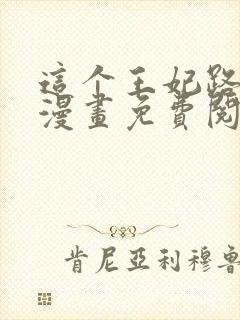 這个王妃路
漫畫免費閱
肯尼亞利穆魯